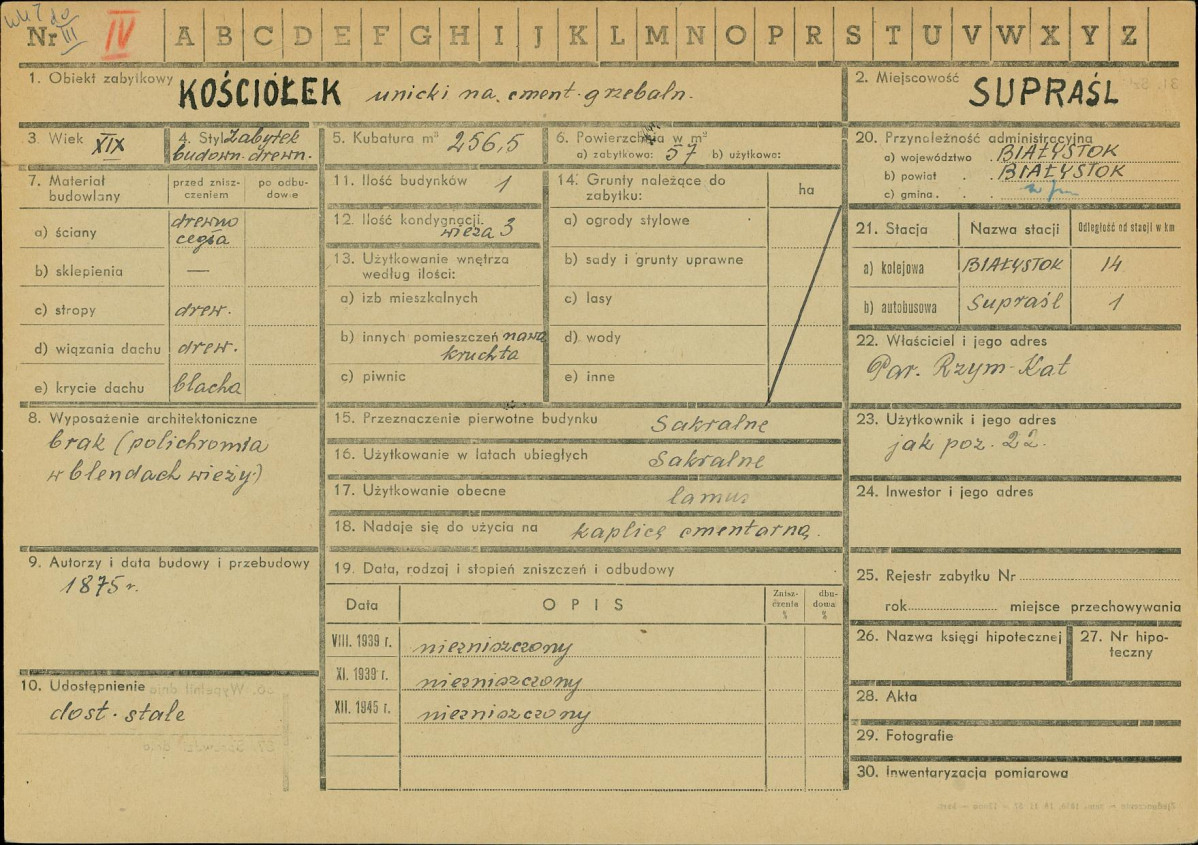 Nr IV A B C D E F G H I J K L M N O P R S T U V W X Y Z
1. Obiekt zabytkowy KOŚCIÓŁEK unicki na cment. grzebaln.
2. Miejscowość SUPRAŚL
3. Wiek XIX
4. Styl Zabytek
budown. drewn.
5. Kubatura m³ 256,5
6. Powierzchnia w m²
a) zabytkowa: 57 b) użytkowe:
7. Materiał
budowlany
przed znisz-
czeniem
po odbu-
dowie
a) ściany drewno
cegła
b) sklepienia —
c) stropy drew.
d) wiązania dachu drew.
e) krycie dachu blacha
8. Wyposażenie architektoniczne
brak (polichromia
w blendach wieży)
9. Autorzy i data budowy i przebudowy
1875 r.
10. Udostępnienie
dost. stale
11. Ilość budynków 1
12. Ilość kondygnacji
wieża 3
13. Użytkowanie wnętrza
według ilości:
a) izb mieszkalnych
b) innych pomieszczeń nawa
kruchta
c) piwnic
14. Grunty należące do
zabytku:
ha
a) ogrody stylowe
b) sady i grunty uprawne
c) lasy
d) wody
e) inne
15. Przeznaczenie pierwotne budynku Sakralne
16. Użytkowanie w latach ubiegłych Sakralne
17. Użytkowanie obecne lamus
18. Nadaje się do użycia na kaplicę cmentarną.
19. Data, rodzaj i stopień zniszczeń i odbudowy
Data OPIS
Znisz-
czenia
%
dbu-
dowa
%
VIII. 1939 r. niezniszczony
XI. 1939 r. niezniszczony
XII. 1945 r. niezniszczony
20. Przynależność administracyjna
a) województwo . BIAŁYSTOK
b) powiat . . BIAŁYSTOK
c) gmina . . .
21. Stacja Nazwa stacji Odległość od stacji w km
a) kolejowa BIAŁYSTOK 14
b) autobusowa Supraśl 1
22. Właściciel i jego adres
Par. Rzym-Kat
23. Użytkownik i jego adres
jak poz. 22.
24. Inwestor i jego adres
25. Rejestr zabytku Nr
rok miejsce przechowywania
26. Nazwa księgi hipotecznej
27. Nr hipo-
teczny
28. Akta
29. Fotografie
30. Inwentaryzacja pomiarowa